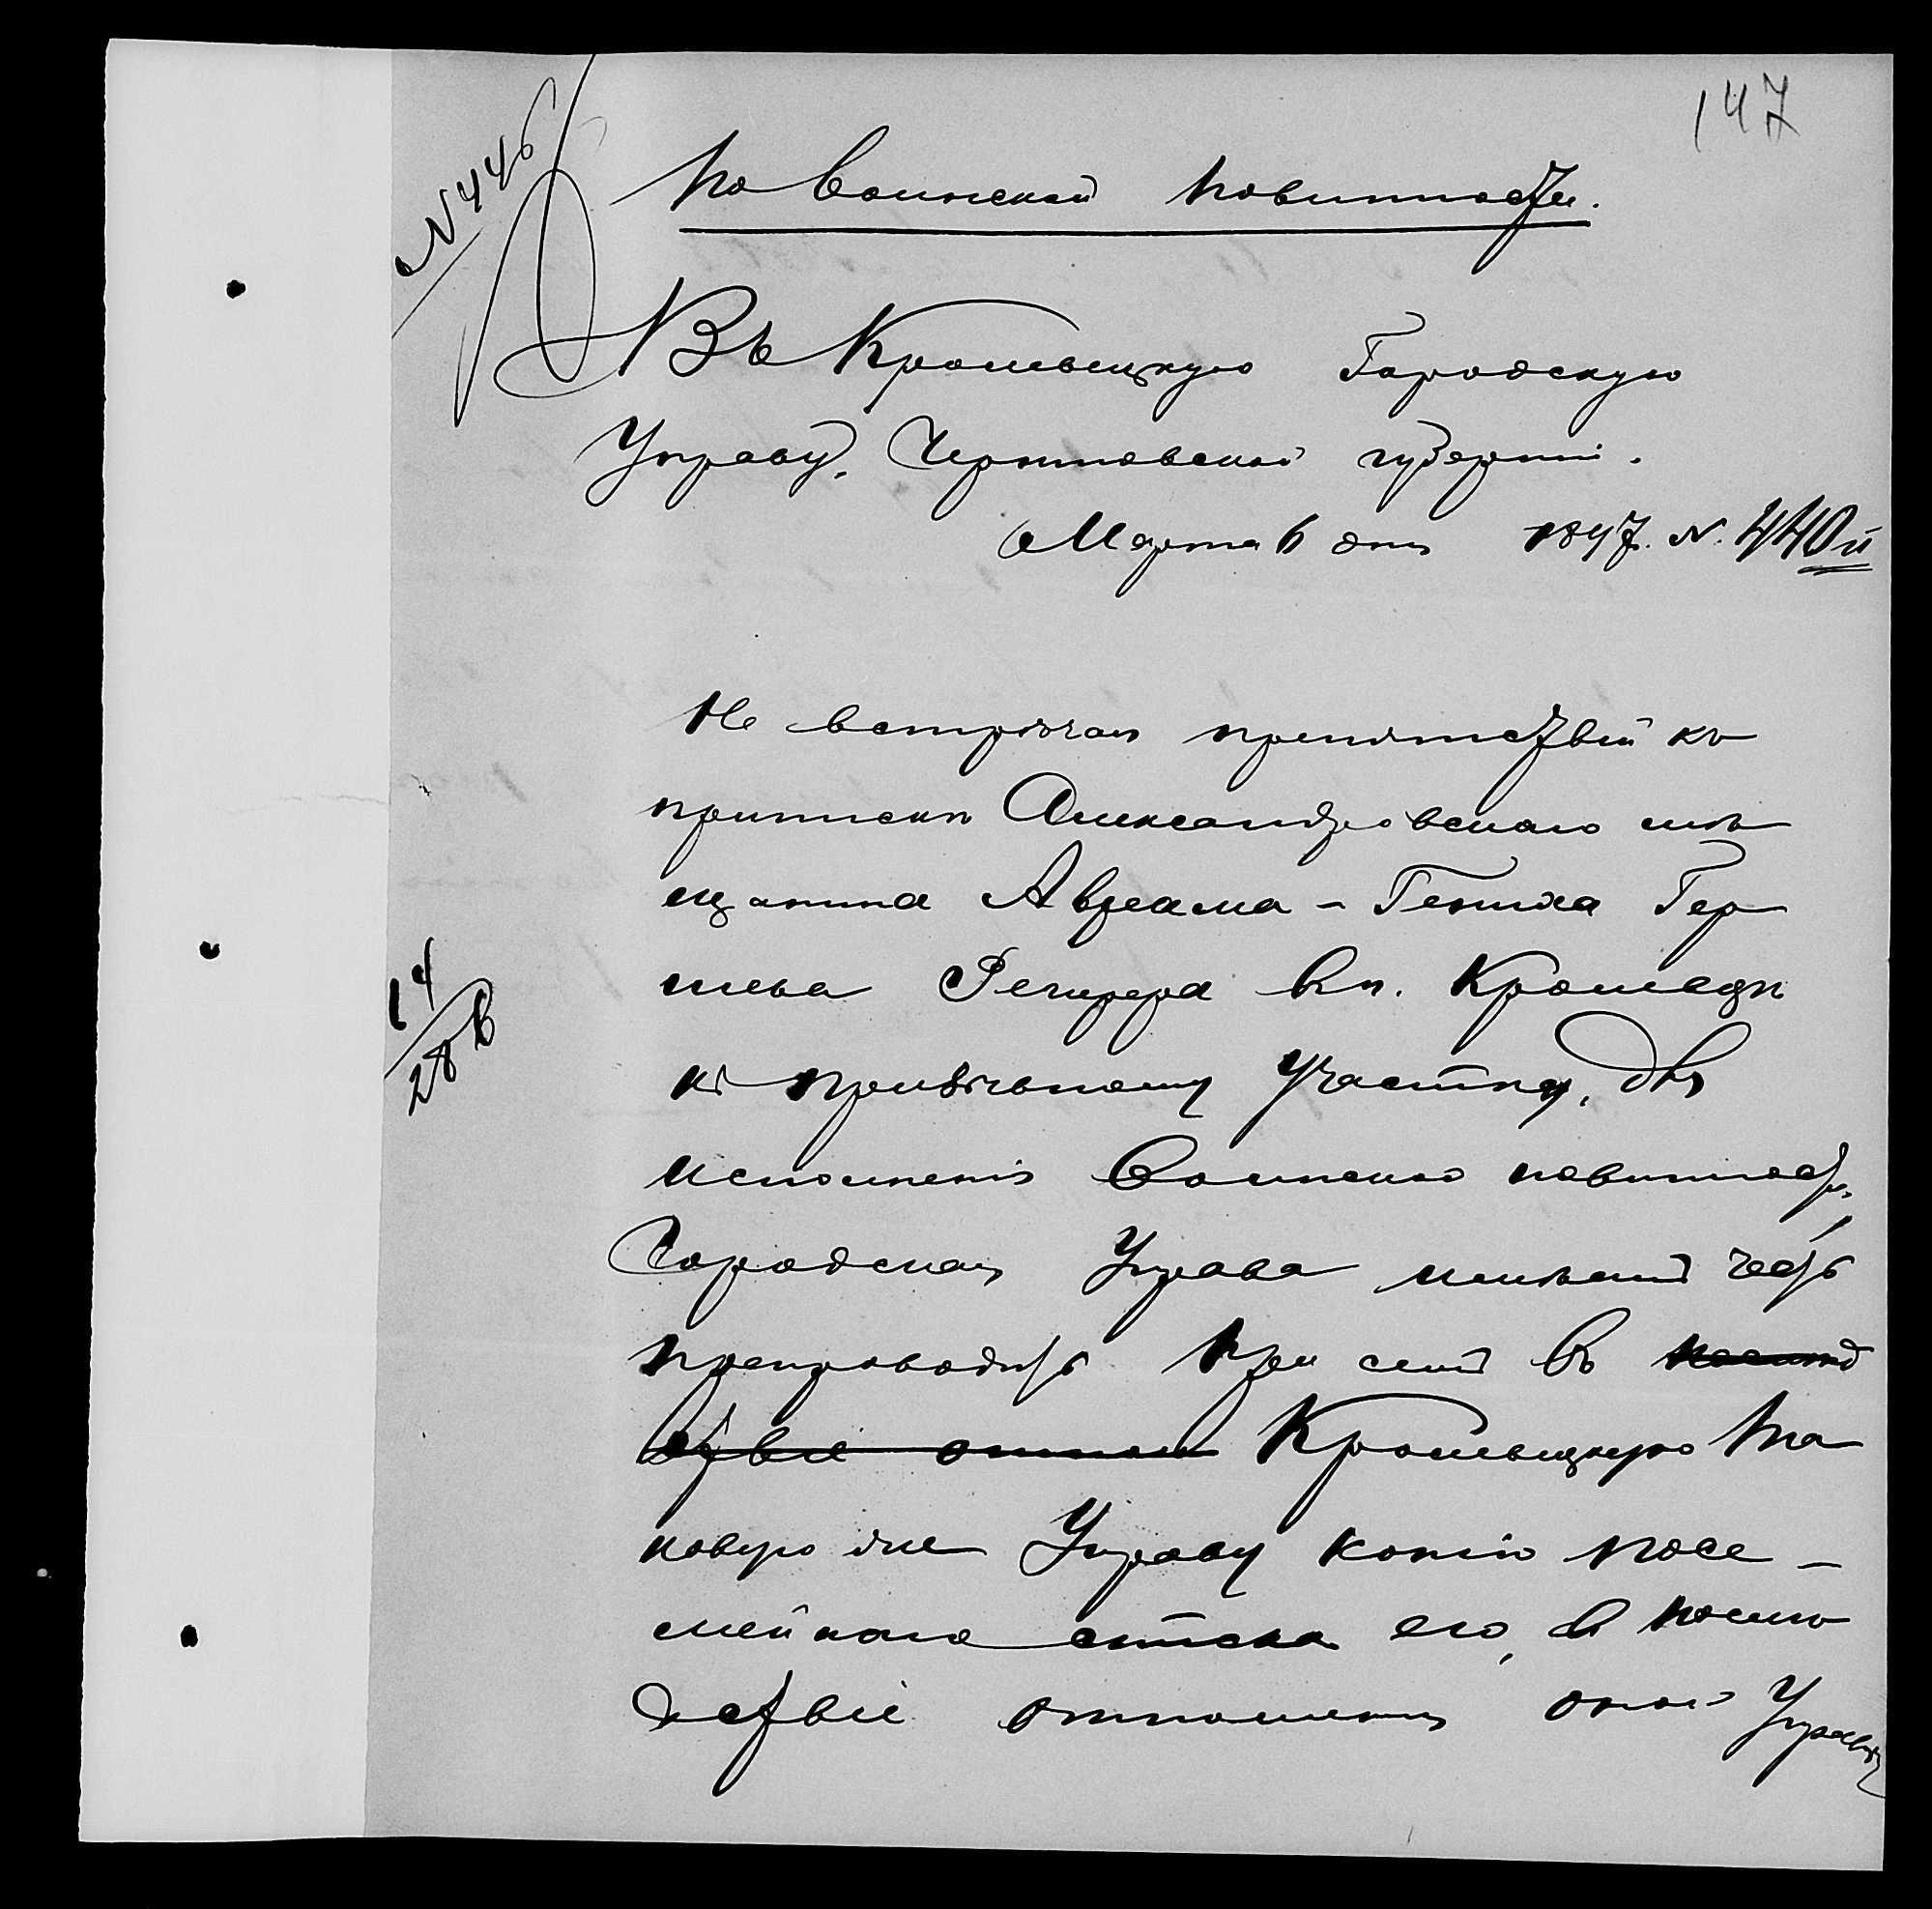 147
№ 446
По воинской повинности.
Въ Кролевецкую Городскую
Управу, Черниговской губерніи.
Марта 6 дня 1897. № 440й
Не встрѣчая препятствій къ
припискѣ Александровскаго мѣ
щанина Авраама-Гениха Гер
шева въ г. Кролевцѣ
къ призывному участку, для
исполненія воинской повинности,
Городская Управа имѣетъ честь
препроводить при семъ въ послѣд
ствіе отнош Кролевецкую та
ковую же Управу копію посе-
мейнаго списка его, въ послѣ
дствіе отношенія оной Управы
14
28